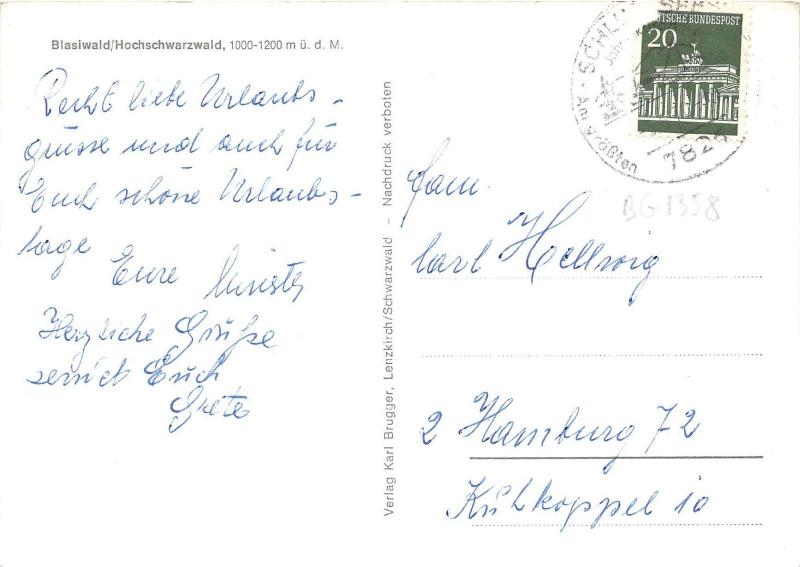 Blasiwald/Hochschwarzwald, 1000-1200 m ü. d. M.
Recht liebe Urlaubs-
grüsse und auch für
Euch schöne Urlaubs-
tage
Eure
Herzliche Grüße
Euch
Grete
Verlag Karl Brugger, Lenzkirch/Schwarzwald - Nachdruck verboten
DEUTSCHE BUNDESPOST
20
782
BG 1358
Fam.
Carl Hellwig
2 Hamburg 72
Kühkoppel 10